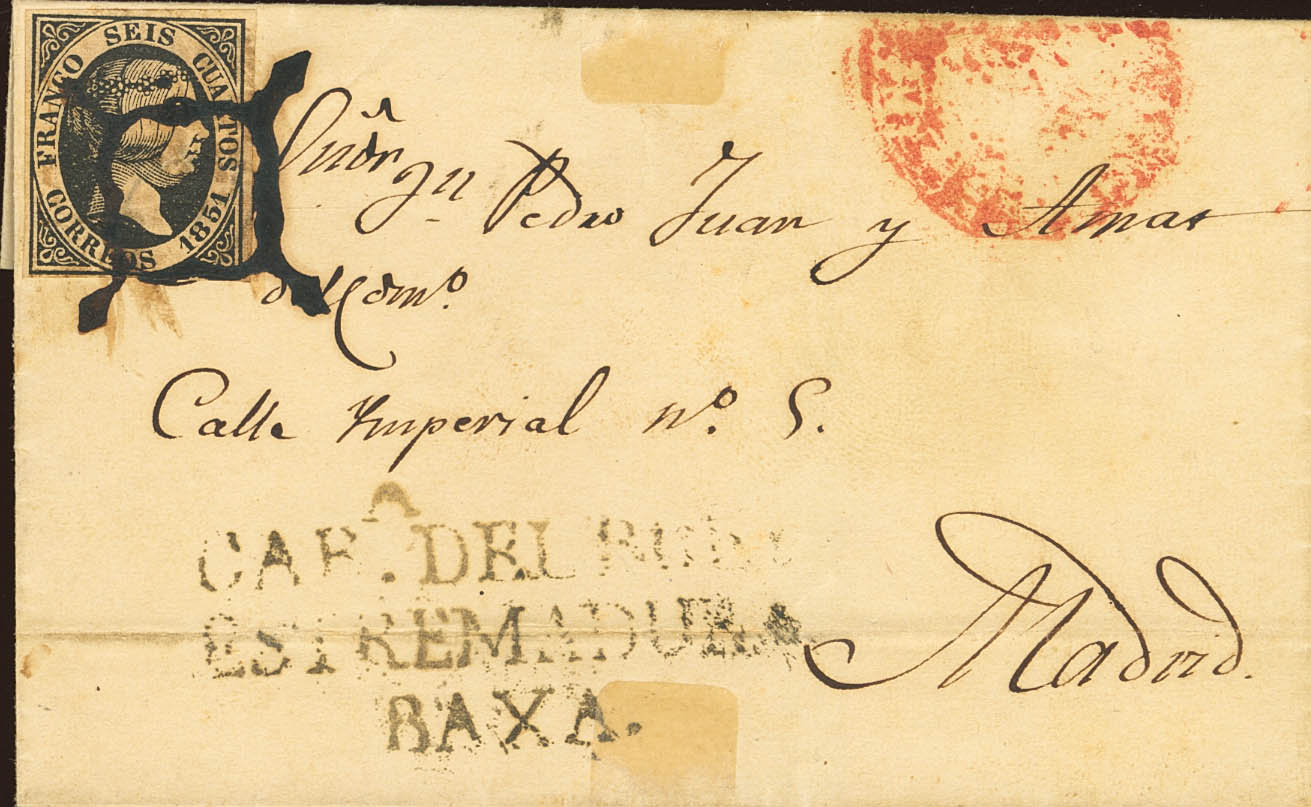 FRANCO SEIS CUARTOS
CORREOS 1851
Pedro Juan y Amat
Calle Imperial nº. 5.
CABª. DEL BUEY
ESTREMADURA
BAXA.
Madrid.